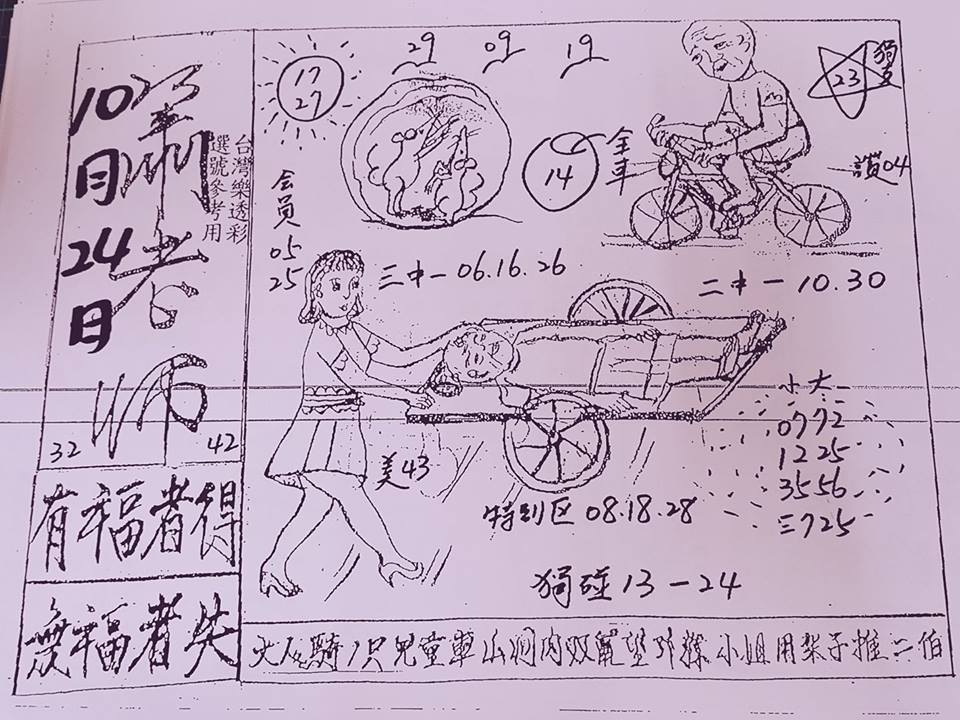 10月24日
老師
台灣樂透彩
選號參考用
32
42
有福者得
無福者失
17
27
29 09 19
14
全車
23
獨支
讚04
会員
05
25
三中一06.16.26
二中一10.30
美43
特别区 08.18.28
小大
0772
1225
3556
三725
獨碰13-24
大人騎1只兒童車山洞内双鼠望外樣小姐用架子推二伯